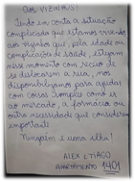 AOS VIZINHOS!
Tendo em conta a situação
complicada que estamos vivendo
aos vizinhos que, pela idade ou
complicações de saúde, estejam
nesse momento com receio de
se deslocarem à rua, nos
disponibilizamos para ajudar
com coisas simples como ir
ao mercado, a farmácia ou
outra necessidade que considerem
importante.
Ninguém é uma ilha!
ALEX E TIAGO
APARTAMENTO 1401